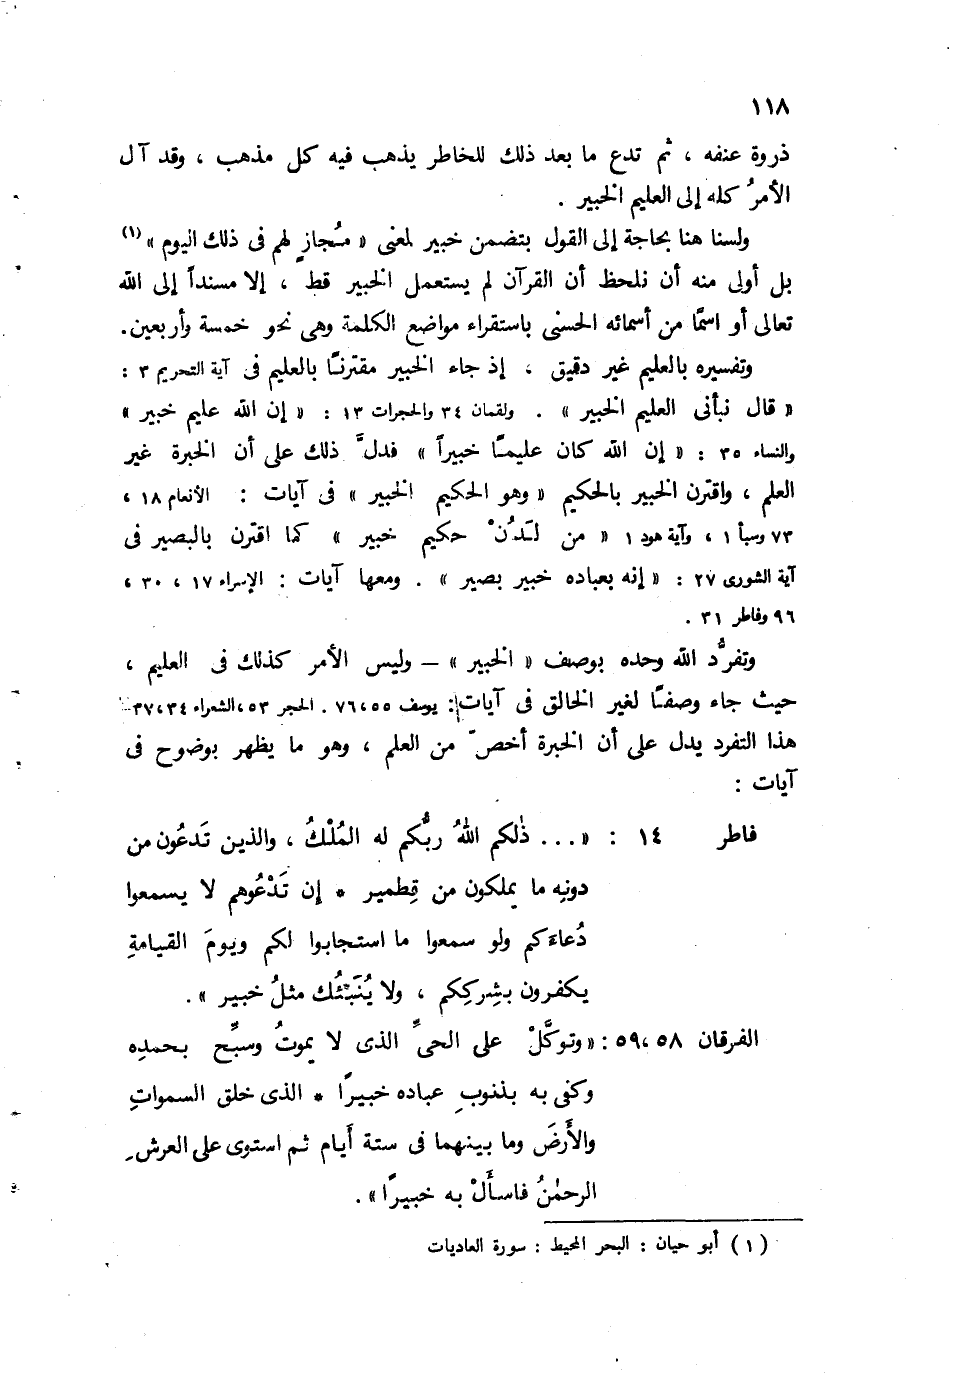 ١١٨
ذروة عنفه ، ثم تدع ما بعد ذلك للخاطر يذهب فيه كل مذهب ، وقد آل
الأمرُ كله إلى العليم الخبير .
ولسنا هنا بحاجة إلى القول بتضمن خبير لمعنى « مُجازٍ لهم فى ذلك اليوم » (١)
بل أولى منه أن نلحظ أن القرآن لم يستعمل الخبير قط ، إلا مسنداً إلى الله
تعالى أو اسمًا من أسمائه الحسنى باستقراء مواضع الكلمة وهى نحو خمسة وأربعين.
وتفسيره بالعليم غير دقيق ، إذ جاء الخبير مقترنًا بالعليم فى آية التحريم ٣ :
« قال نبأنى العليم الخبير » . ولقمان ٣٤ والحجرات ١٣ : « إن الله عليم خبير »
والنساء ٣٥ : « إن الله كان عليمًا خبيراً » فدلَّ ذلك على أن الخبرة غير
العلم ، واقترن الخبير بالحكيم « وهو الحكيم الخبير » فى آيات : الأنعام ١٨ ،
٧٣ وسبأ ١ ، وآية هود ١ « من لَدُنْ حكيم خبير » كما اقترن بالبصير فى
آية الشورى ٢٧ : « إنه بعباده خبير بصير » . ومعها آيات : الإسراء ١٧ ، ٣٠ ،
٩٦ وفاطر ٣١ .
وتفرُّد الله وحده بوصف « الخبير » — وليس الأمر كذلك فى العليم ،
حيث جاء وصفًا لغير الخالق فى آيات : يوسف ٥٥ ،٧٦ . الحجر ٥٣ ،الشعراء ٣٤ ،٣٧–
هذا التفرد يدل على أن الخبرة أخصّ من العلم ، وهو ما يظهر بوضوح فى
آيات :
فاطر ١٤ : « ... ذٰلكم اللهُ ربُّكم له المُلْكُ ، والذين تَدعُون من
دونِه ما يملكون من قِطمير * إن تَدْعُوهم لا يسمعوا
دُعاءَكم ولو سمعوا ما استجابوا لكم ويومَ القيامةِ
يكفرون بشِرككم ، ولا يُنَبِّئُك مثلُ خبير » .
الفرقان ٥٨ ،٥٩ : « وتوكَّلْ على الحىِّ الذى لا يموتُ وسبِّح بحمدِه
وكفى به بذنوبِ عباده خبيرًا * الذى خلق السمواتِ
والأَرضَ وما بينهما فى ستة أَيام ثم استوى على العرش
الرحمٰنُ فاسأَلْ به خبيرًا » .
(١) أبو حيان : البحر المحيط : سورة العاديات